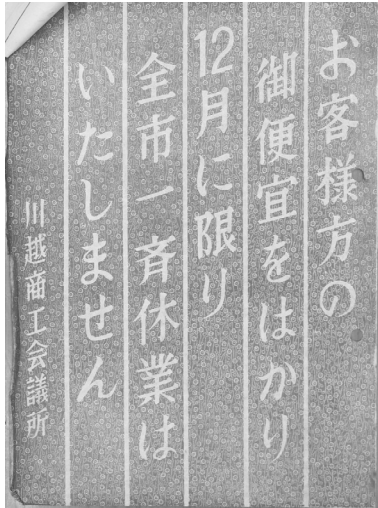 お客様方の
御便宜をはかり
12月に限り
全市一斉休業は
いたしません
川越商工会議所